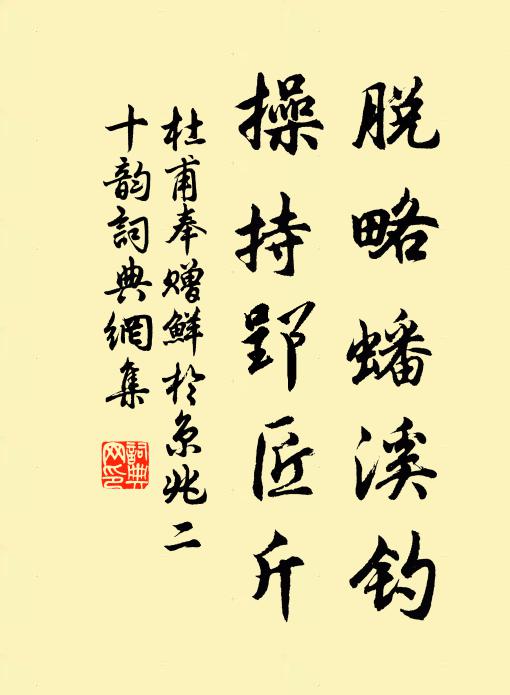 脱略蟠溪钓
操持郢匠斤
杜甫奉赠鲜於京兆二
十韵词典網集
詞典
网印